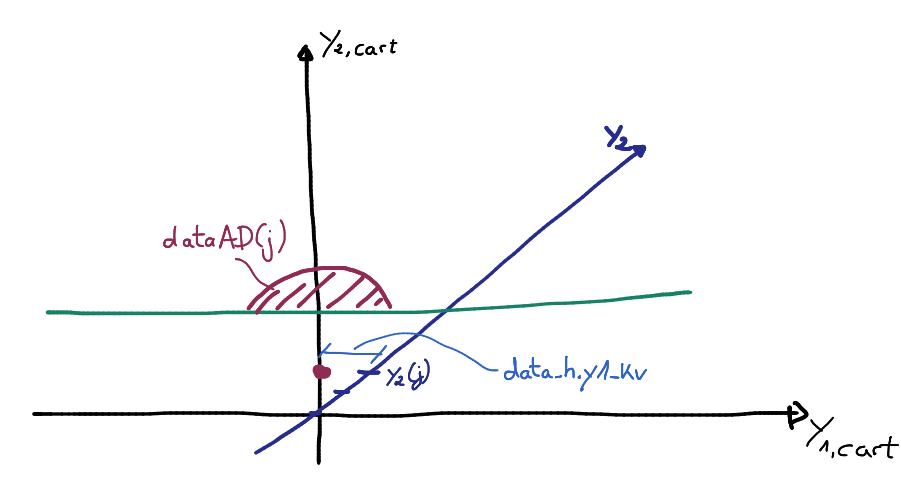 Y2,cart
Y2
dataAD(j)
Y2(j)
data_h.y1_kv
Y1,cart